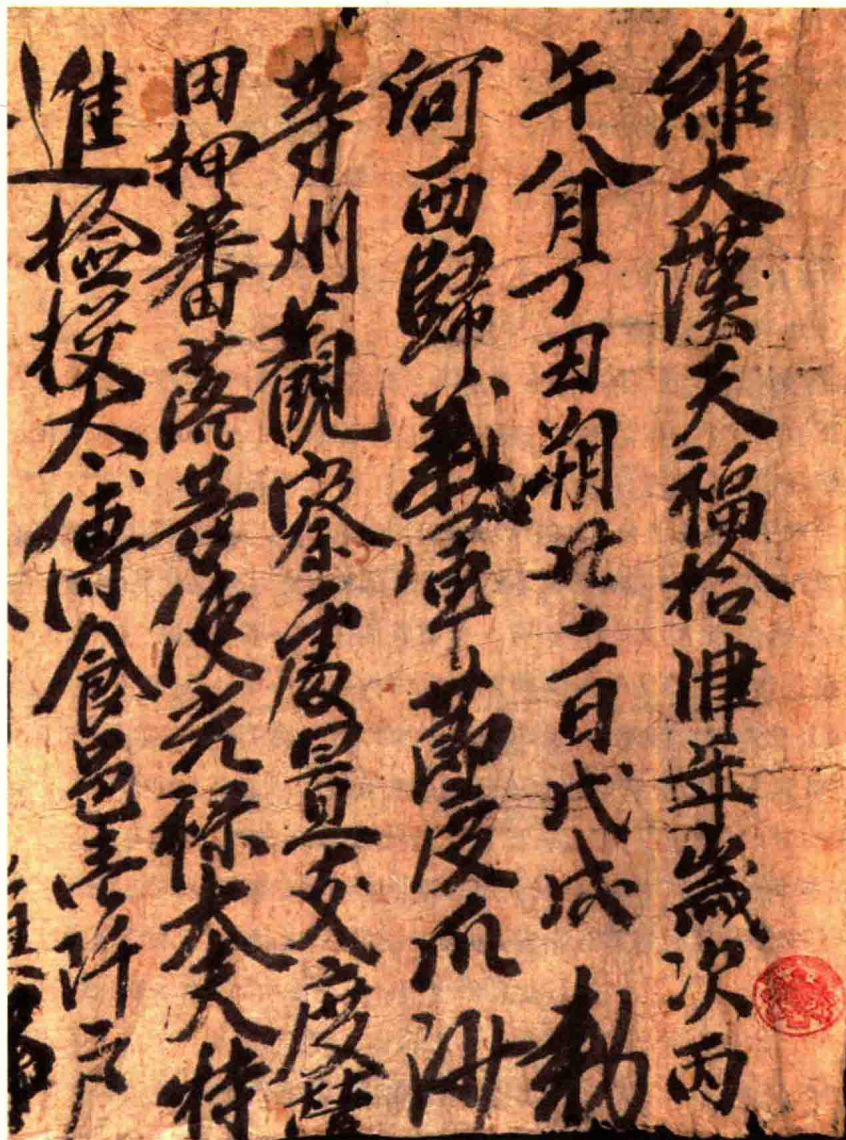 維大漢天福拾肆年歲次丙
午八月丁丑朔廿二日戊戌 勅
河西歸義軍節度瓜沙
等州觀察處置支度營
田押蕃落等使光祿大夫特
進撿挍太傅食邑壹阡戶